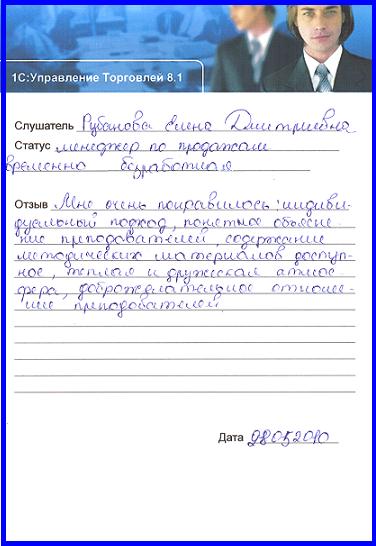 1С:Управление Торговлей 8.1
Слушатель Рубанова Елена Дмитриевна
Статус менеджер по продажам
временно безработная
Отзыв Мне очень понравилось: индиви-
дуальный подход, понятное объясне-
ние преподавателей, содержание
методических материалов доступ-
ное, теплая и дружеская атмос-
фера, доброжелательное отноше-
ние преподавателей
Дата 28052010